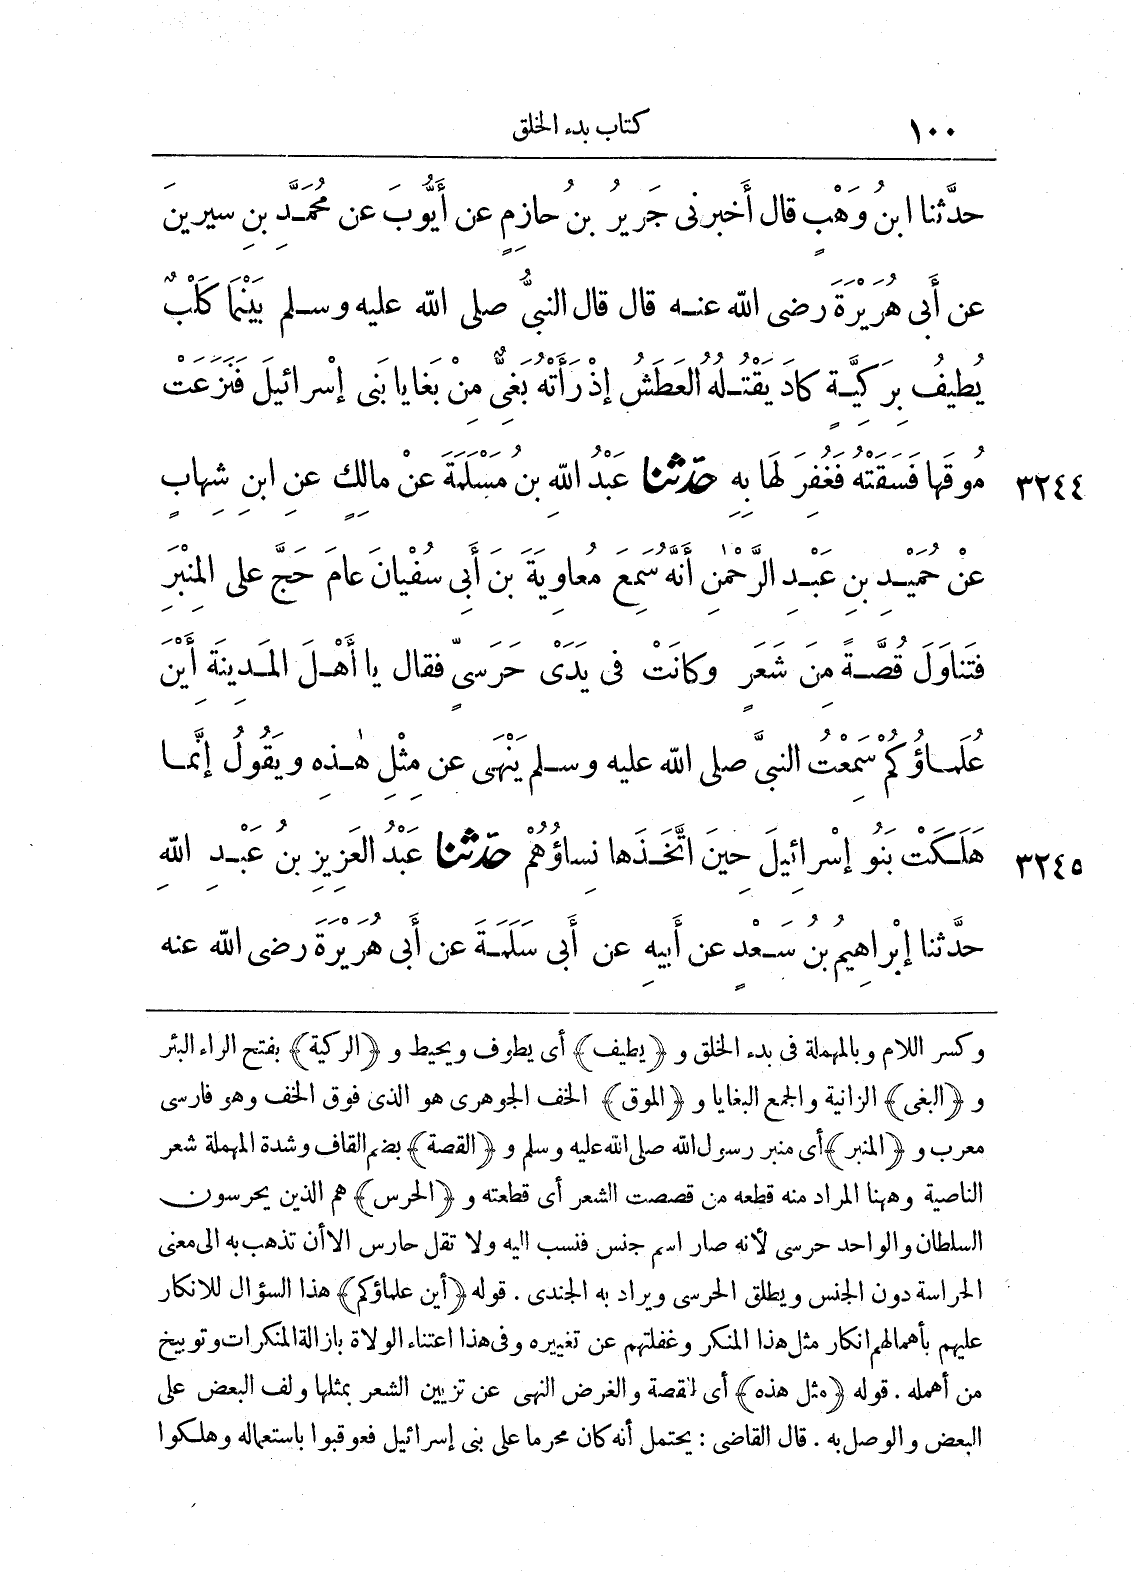 ١٠٠ كتاب بدء الخلق
حدَّثنا ابنُ وَهْبٍ قال أَخبرنى جَريرُ بنُ حازِمٍ عن أَيُّوبَ عن مُحَمَّدِ بنِ سيرينَ
عن أَبى هُرَيْرَةَ رضى الله عنه قال قال النبىُّ صلى الله عليه وسلم بَيْنَما كَلْبٌ
يُطيفُ بِرَكِيَّةٍ كادَ يَقْتُلُهُ العَطَشُ إِذْ رَأَتْهُ بَغِىٌّ مِنْ بَغايا بَنى إِسْرائيلَ فَنَزَعَتْ
٣٢٤٤ مُوقَها فَسَقَتْهُ فَغُفِرَ لَها بِهِ حَدَّثَنا عَبْدُ اللهِ بنُ مَسْلَمَةَ عَنْ مالِكٍ عنِ ابنِ شِهابٍ
عَنْ حُمَيْدِ بنِ عَبْدِ الرَّحْمٰنِ أَنَّهُ سَمِعَ مُعاوِيَةَ بنَ أَبى سُفْيانَ عامَ حَجَّ على المِنْبَرِ
فَتَناوَلَ قُصَّةً مِنَ شَعَرٍ وكانَتْ فى يَدَىْ حَرَسِىٍّ فقال يا أَهْلَ المَدينَةِ أَيْنَ
عُلَماؤُكُمْ سَمِعْتُ النبىَّ صلى الله عليه وسلم يَنْهَى عن مِثْلِ هٰذِهِ ويَقُولُ إِنَّما
٣٢٤٥ هَلَكَتْ بَنُو إِسْرائيلَ حِينَ اتَّخَذَها نِساؤُهُمْ حَدَّثَنا عَبْدُ العَزِيزِ بنُ عَبْدِ اللهِ
حدَّثنا إِبْراهِيمُ بنُ سَعْدٍ عن أَبيهِ عن أَبى سَلَمَةَ عن أَبى هُرَيْرَةَ رضى الله عنه
وكسر اللام وبالمهملة فى بدء الخلق و ﴿يطيف﴾ أى يطوف ويحيط و ﴿الركية﴾ بفتح الراء البئر
و ﴿البغى﴾ الزانية والجمع البغايا و ﴿الموق﴾ الخف الجوهرى هو الذى فوق الخف وهو فارسى
معرب و ﴿المنبر﴾ أى منبر رسول الله صلى الله عليه وسلم و ﴿القصة﴾ بضم القاف وشدة المهملة شعر
الناصية وههنا المراد منه قطعه من قصصت الشعر أى قطعته و ﴿الحرس﴾ هم الذين يحرسون
السلطان والواحد حرسى لأنه صار اسم جنس فنسب اليه ولا تقل حارس الا أن تذهب به الى معنى
الحراسة دون الجنس ويطلق الحرسى ويراد به الجندى . قوله ﴿أين علماؤكم﴾ هذا السؤال للانكار
عليهم بأهمالهم انكار مثل هذا المنكر وغفلتهم عن تغييره وفى هذا اعتناء الولاة بازالة المنكرات وتوبيخ
من أهمله . قوله ﴿مثل هذه﴾ أى القصة والغرض النهى عن تزيين الشعر بمثلها ولف البعض على
البعض والوصل به . قال القاضى : يحتمل أنه كان محرما على بنى إسرائيل فعوقبوا باستعماله وهلكوا